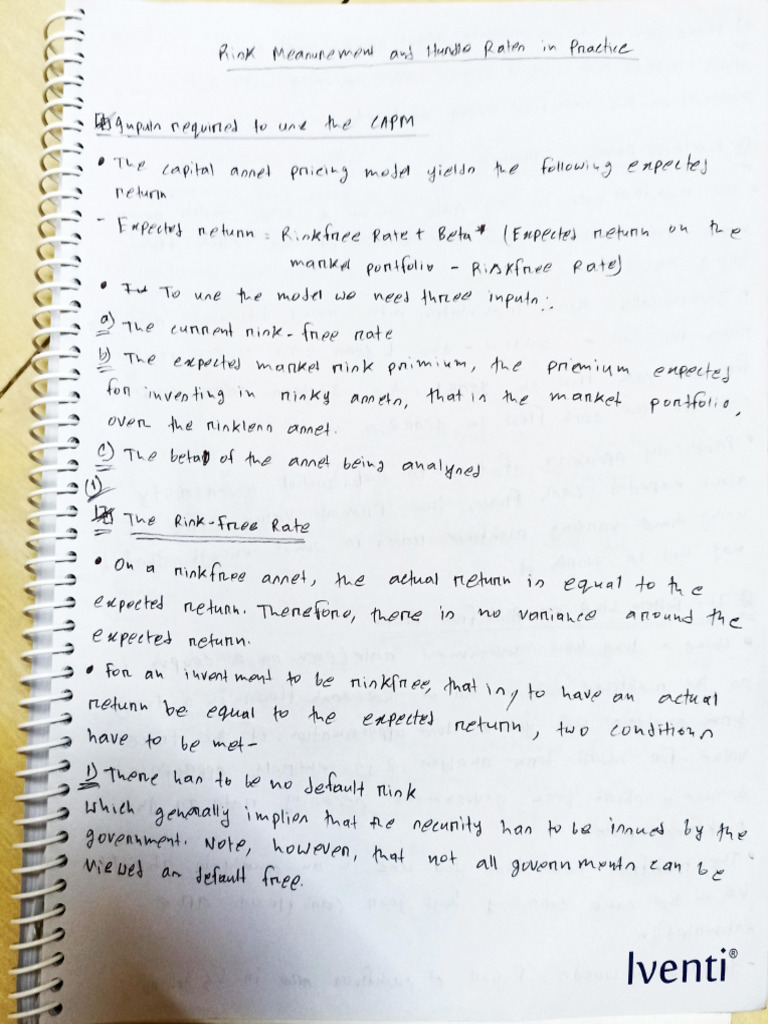 Risk Measurement and Hurdle Rates in Practice
Inputs required to use the CAPM
• The capital asset pricing model yields the following expected
return
- Expected return = Riskfree Rate + Beta* (Expected return on the
market portfolio - Riskfree Rate)
• To use the model we need three inputs:
a) The current risk-free rate
b) The expected market risk primium, the premium expected
for investing in risky assets, that is the market portfolio,
over the riskless asset.
c) The beta of the asset being analysed
(1)
The Risk-Free Rate
• On a riskfree asset, the actual return is equal to the
expected return. Therefore, there is no variance around the
expected return.
• For an investment to be riskfree, that is, to have an actual
return be equal to the expected return, two conditions
have to be met-
1) There has to be no default risk
which generally implies that the security has to be issued by the
government. Note, however, that not all governments can be
viewed as default free.
Iventi®